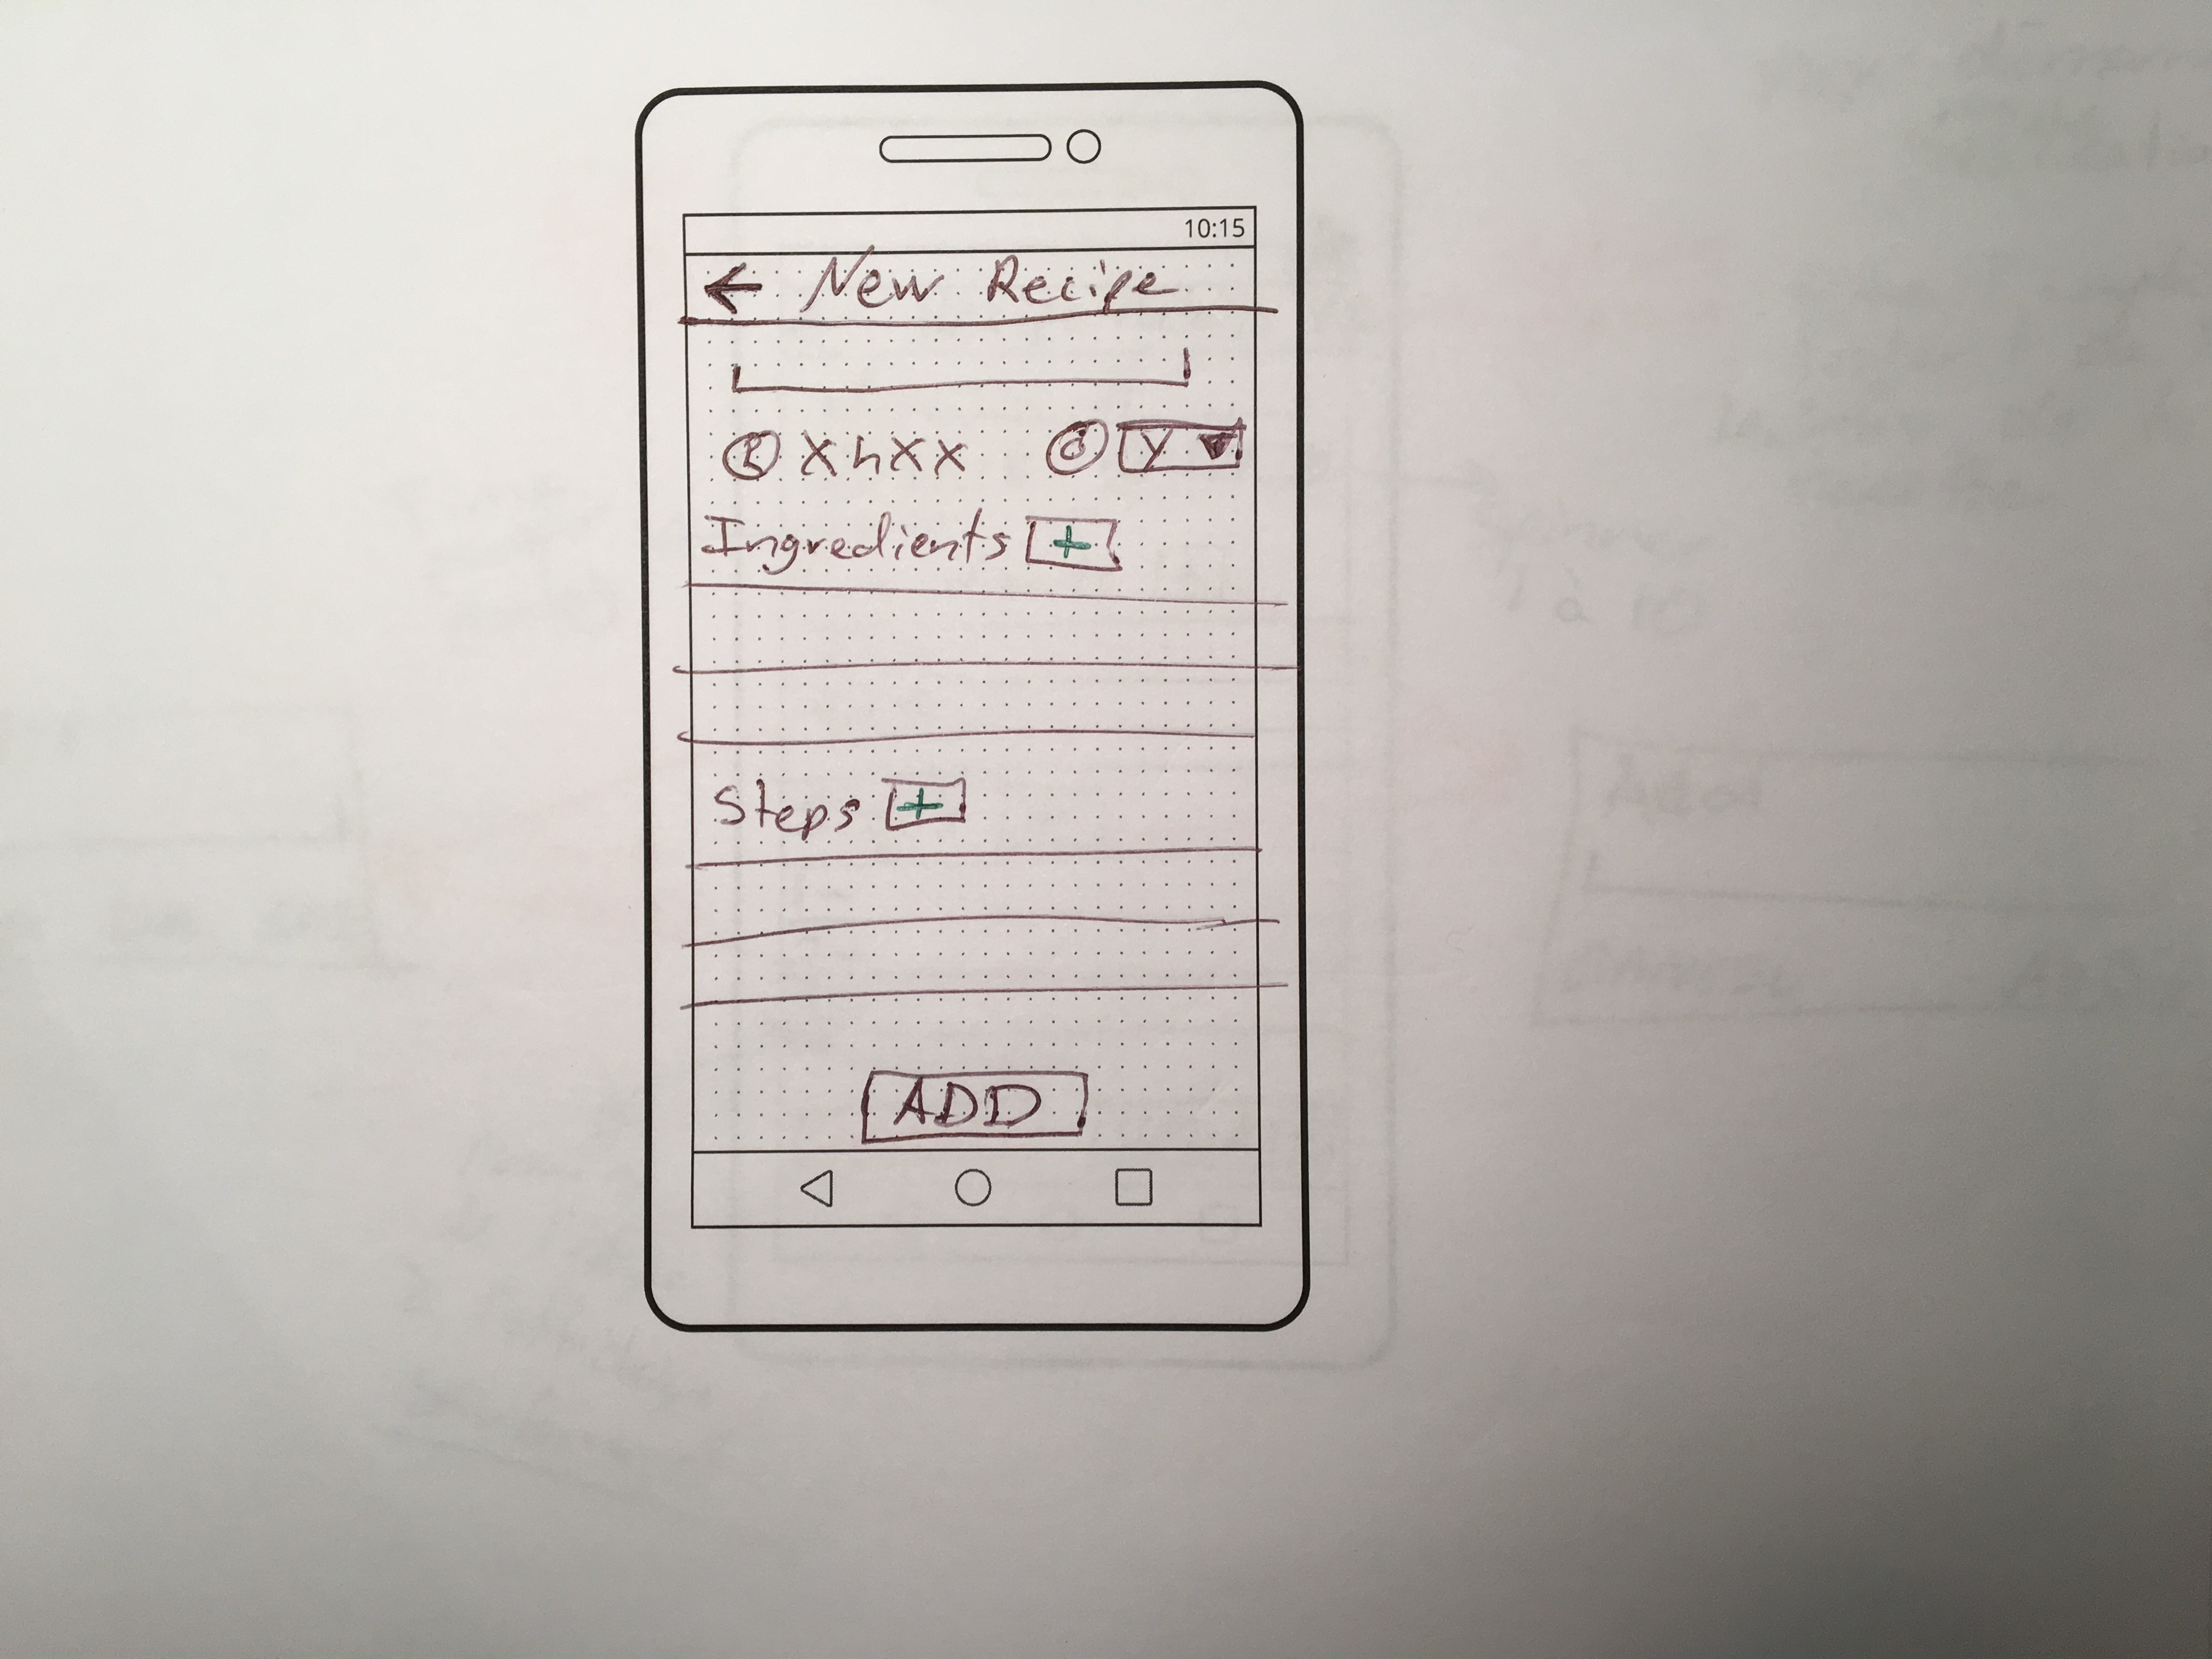 10:15
← New Recipe
XhXX Y
Ingredients +
Steps +
ADD